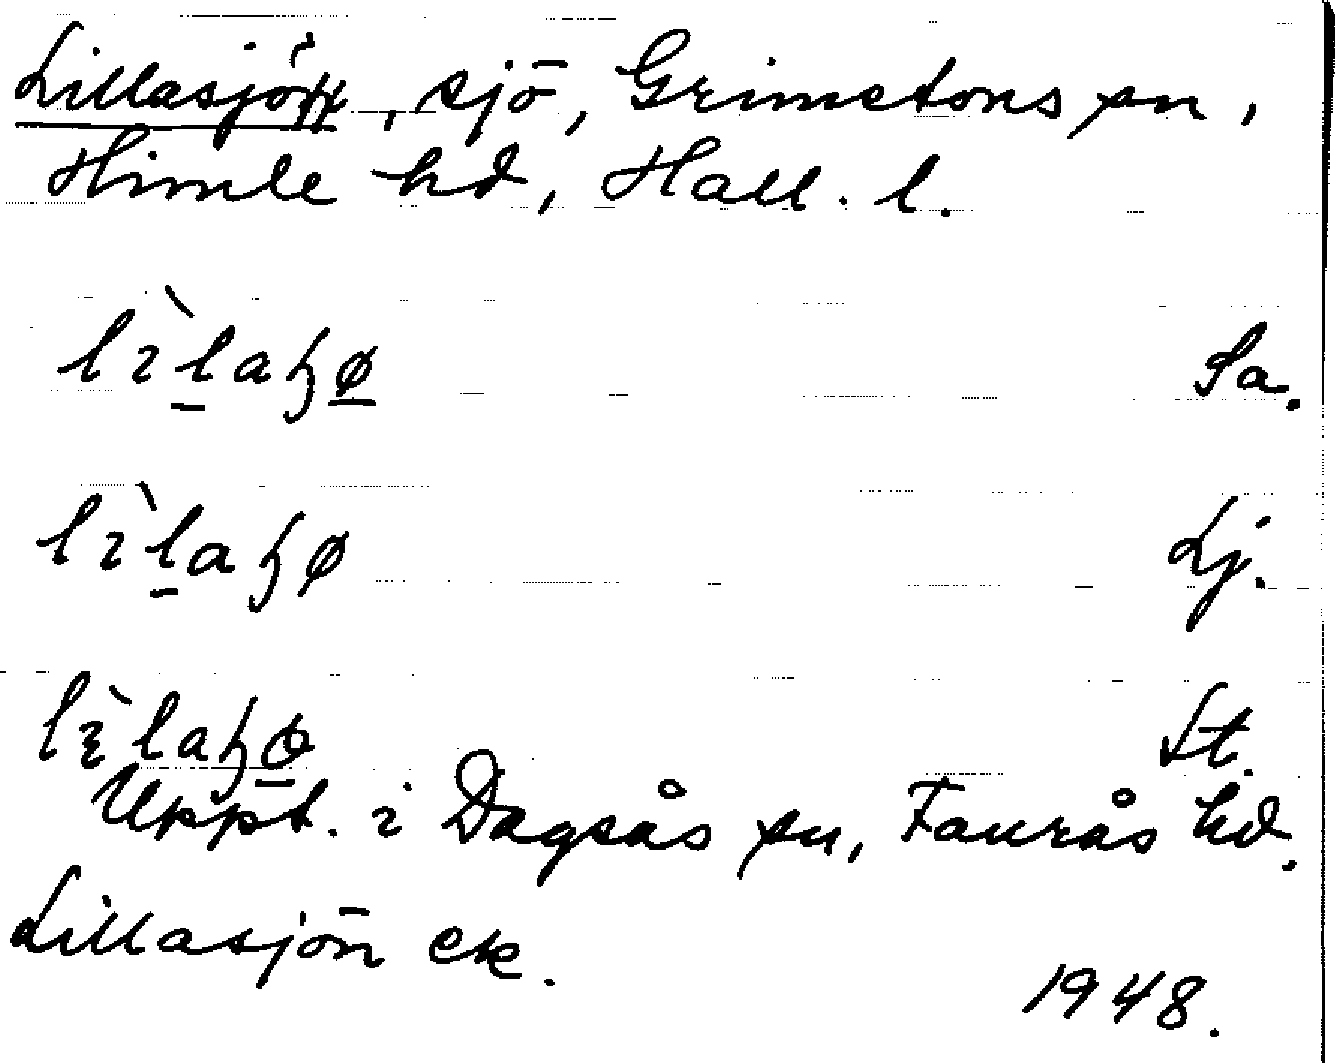 Lillasjö, sjö, Grimetons sn,
Himle hd, Hall. l.
lìlaɧø Sa.
lìlaɧø Lj.
lìlaɧø St.
Uppt. i Dagsås sn, Faurås hd.
Lillasjön ek.
1948.